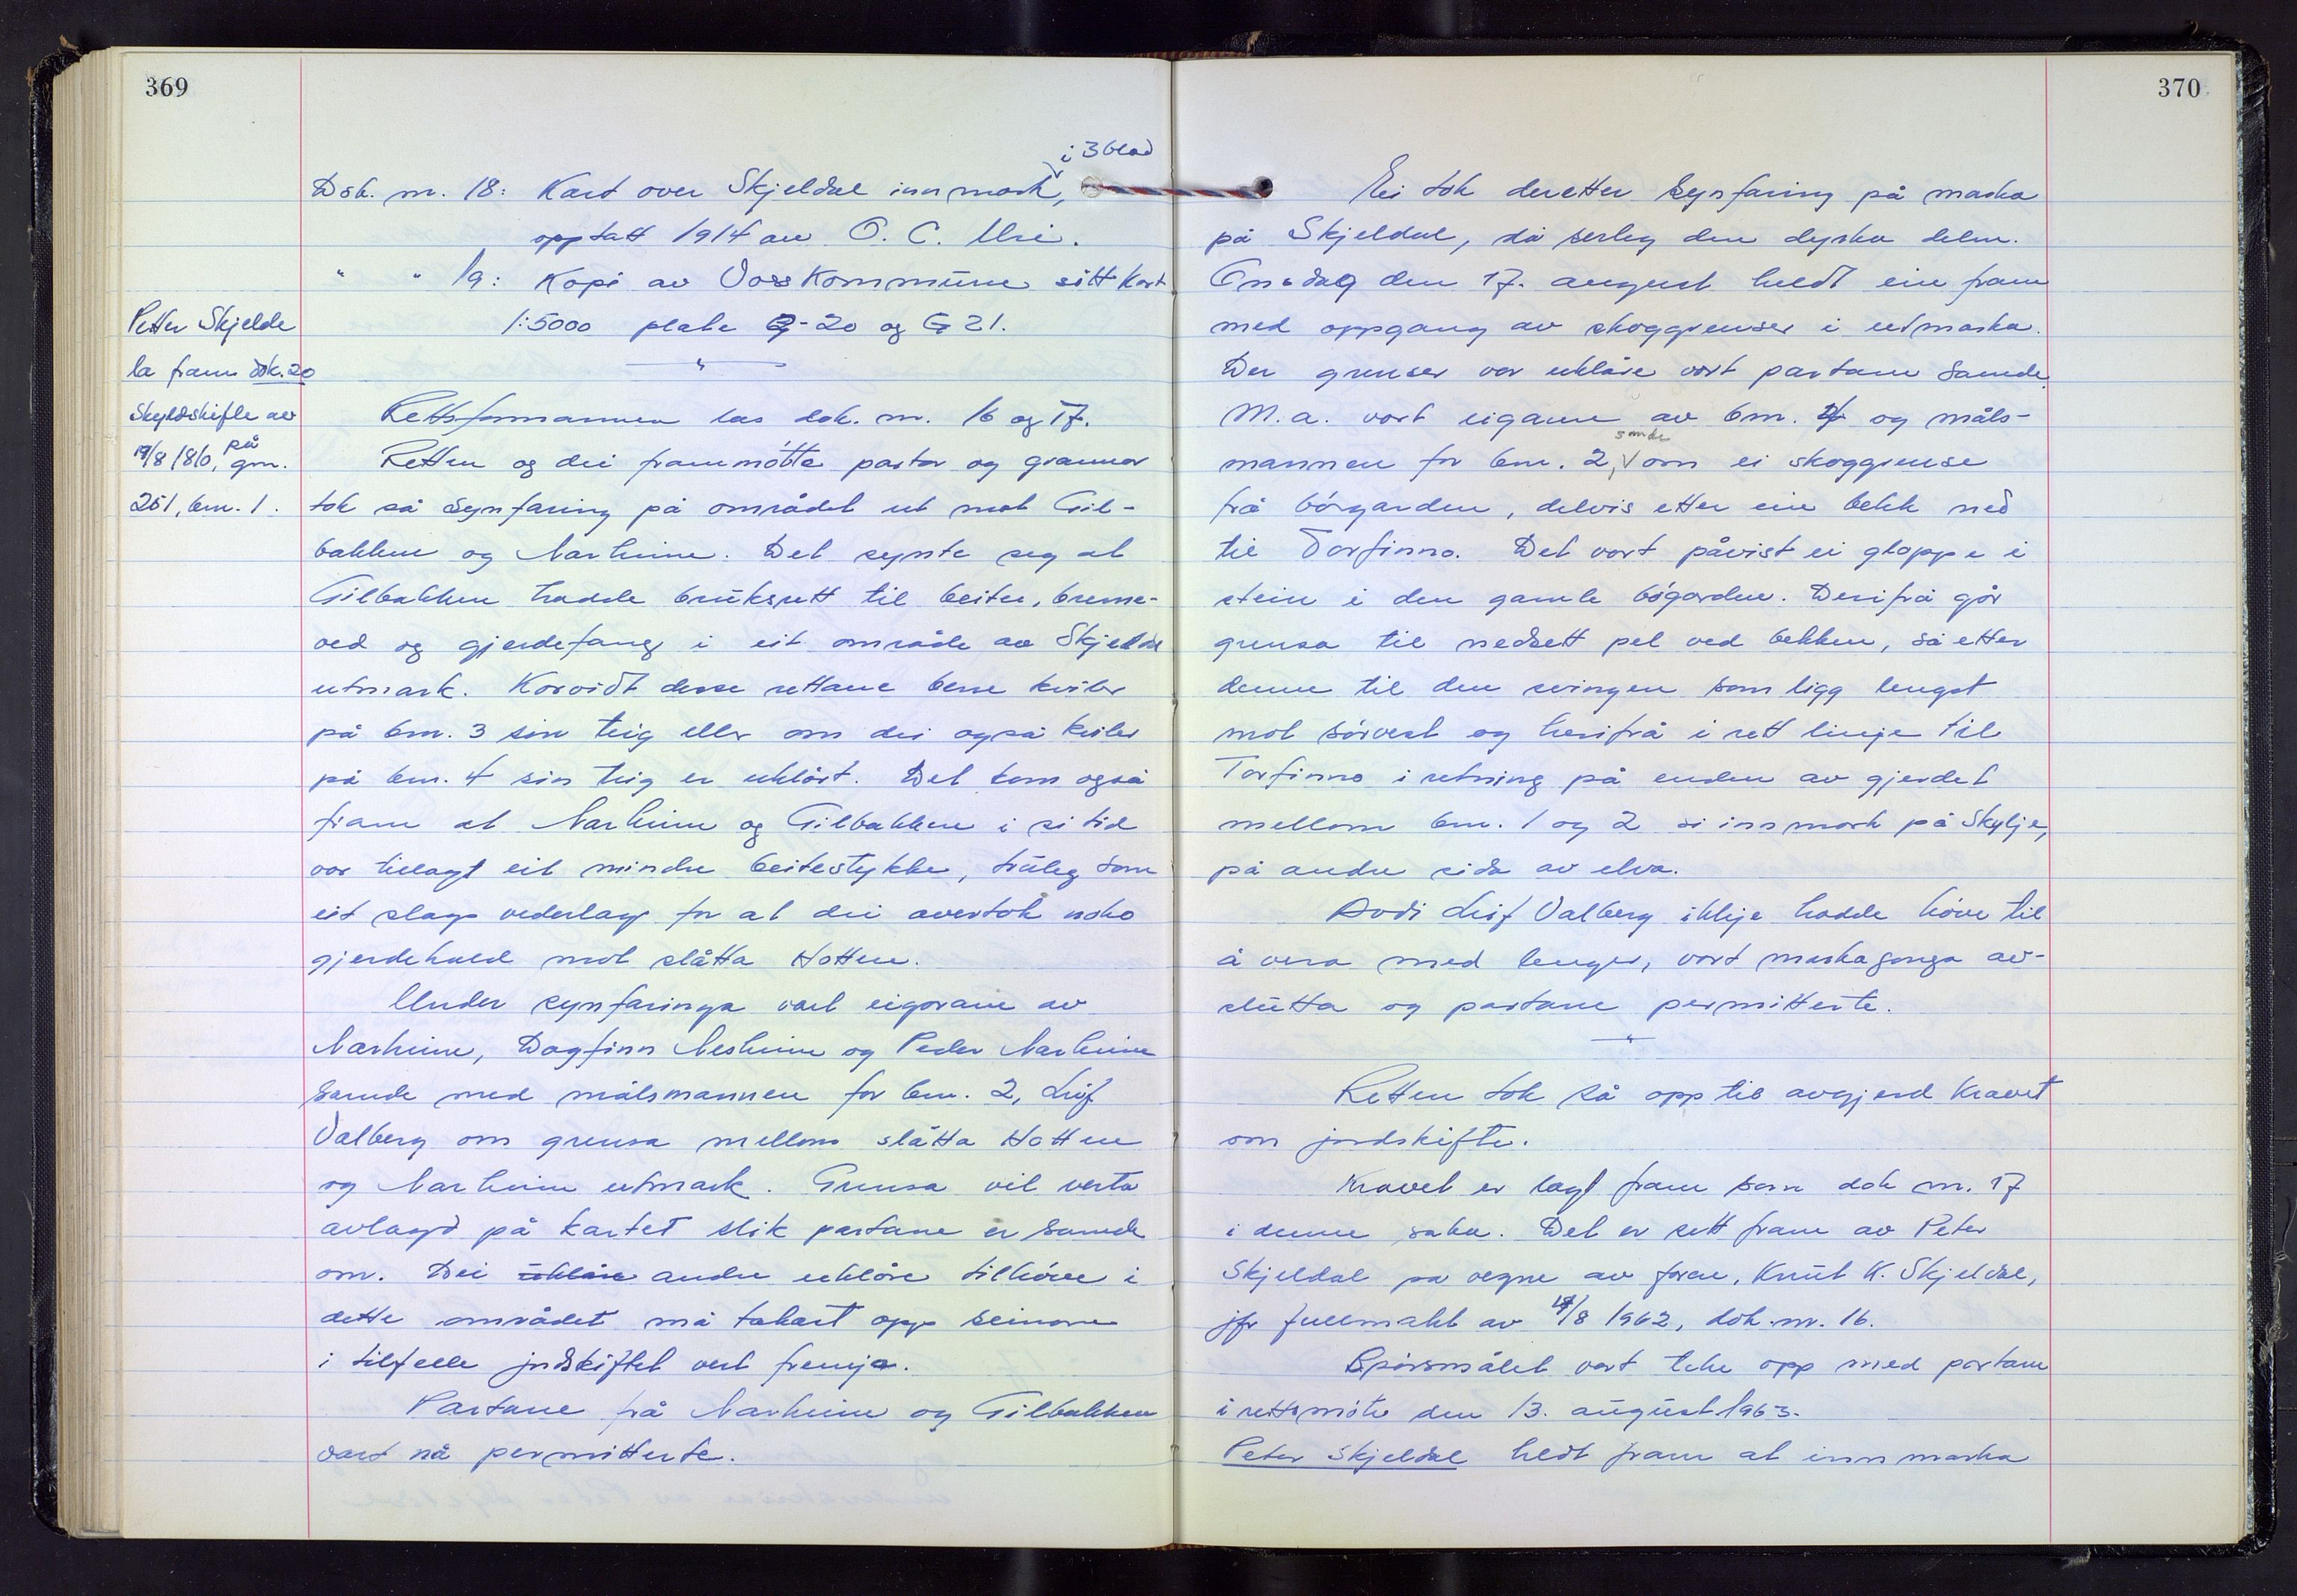 369
i 3 blad
Dok. nr. 18: Kart over Skjeldal innmark,
opptatt 1914 av O. C. Uri.
" " 19: Kopi av Voss Kommune sitt kart
1:5000 plate G-20 og G 21.
"
Petter Skjelde
la fram dok. 20
Skyldskifte av
19/8 1810, på gnr.
251, bnr. 1.
Rettsformannen las dok. nr. 16 og 17.
Retten og dei frammøtte partar og grannar
tok så synfaring på området ut mot Gil-
bakken og Narheim. Det synte seg at
Gilbakken hadde bruksrett til beite, brenne-
ved og gjerdefang i eit område av Skjeldal
utmark. Korvidt desse rettane berre kviler
på bnr. 3 sin teig eller om dei også kviler
på bnr. 4 sin teig er uklårt. Det kom også
fram at Narheim og Gilbakken i si tid
var tillagt eit mindre beitestykke, truleg som
eit slags vederlag for at dei overtok noko
gjerdehald mot slåtta Hotten.
Under synfaringa vart eigarane av
Narheim, Dagfinn Nesheim og Peder Narheim
samde med målsmannen for bnr. 2, Leif
Valberg om grensa mellom slåtta Hotten
og Narheim utmark. Grensa vil verta
avlagd på kartet slik partane er samde
om. Dei uklåre andre uklåre tilhøve i
dette området må takast opp seinare
i tilfelle jordskiftet vert fremja.
Partane frå Narheim og Gilbakken
vart nå permitterte.
370
Ei tok deretter synfaring på marka
på Skjeldal, då serleg den dyrka delen.
Onsdag den 17. august heldt ein fram
med oppgang av skoggrenser i utmarka.
Der grenser var uklåre vart partane samde.
M.a. vart eigaren av bnr. 4 og måls-
mannen for bnr. 2, samde om ei skoggrense
frå bøgarden, delvis etter ein bekk ned
til Torfinno. Det vart påvist ei gloppe i
stein i den gamle bøgarden. Derifrå går
grensa til nedsett pel ved bekken, så etter
denne til den svingen som ligg lengst
mot sørvest og herifrå i rett linje til
Torfinno i retning på enden av gjerdet
mellom bnr. 1 og 2 si innmark på Skylje,
på andre sida av elva.
Avdi Leif Valberg ikkje hadde høve til
å vera med lenger, vart markagonga av-
slutta og partane permitterte.
"
Retten tok så opp til avgjerd kravet
om jordskifte.
Kravet er lagt fram som dok nr. 17
i denne saka. Det er sett fram av Peter
Skjeldal på vegne av faren, Knut K. Skjeldal,
jfr fullmakt av 14/8 1962, dok. nr. 16.
Spørsmålet vart teke opp med partane
i rettsmøte den 13. august 1963.
Peter Skjeldal heldt fram at innmarka